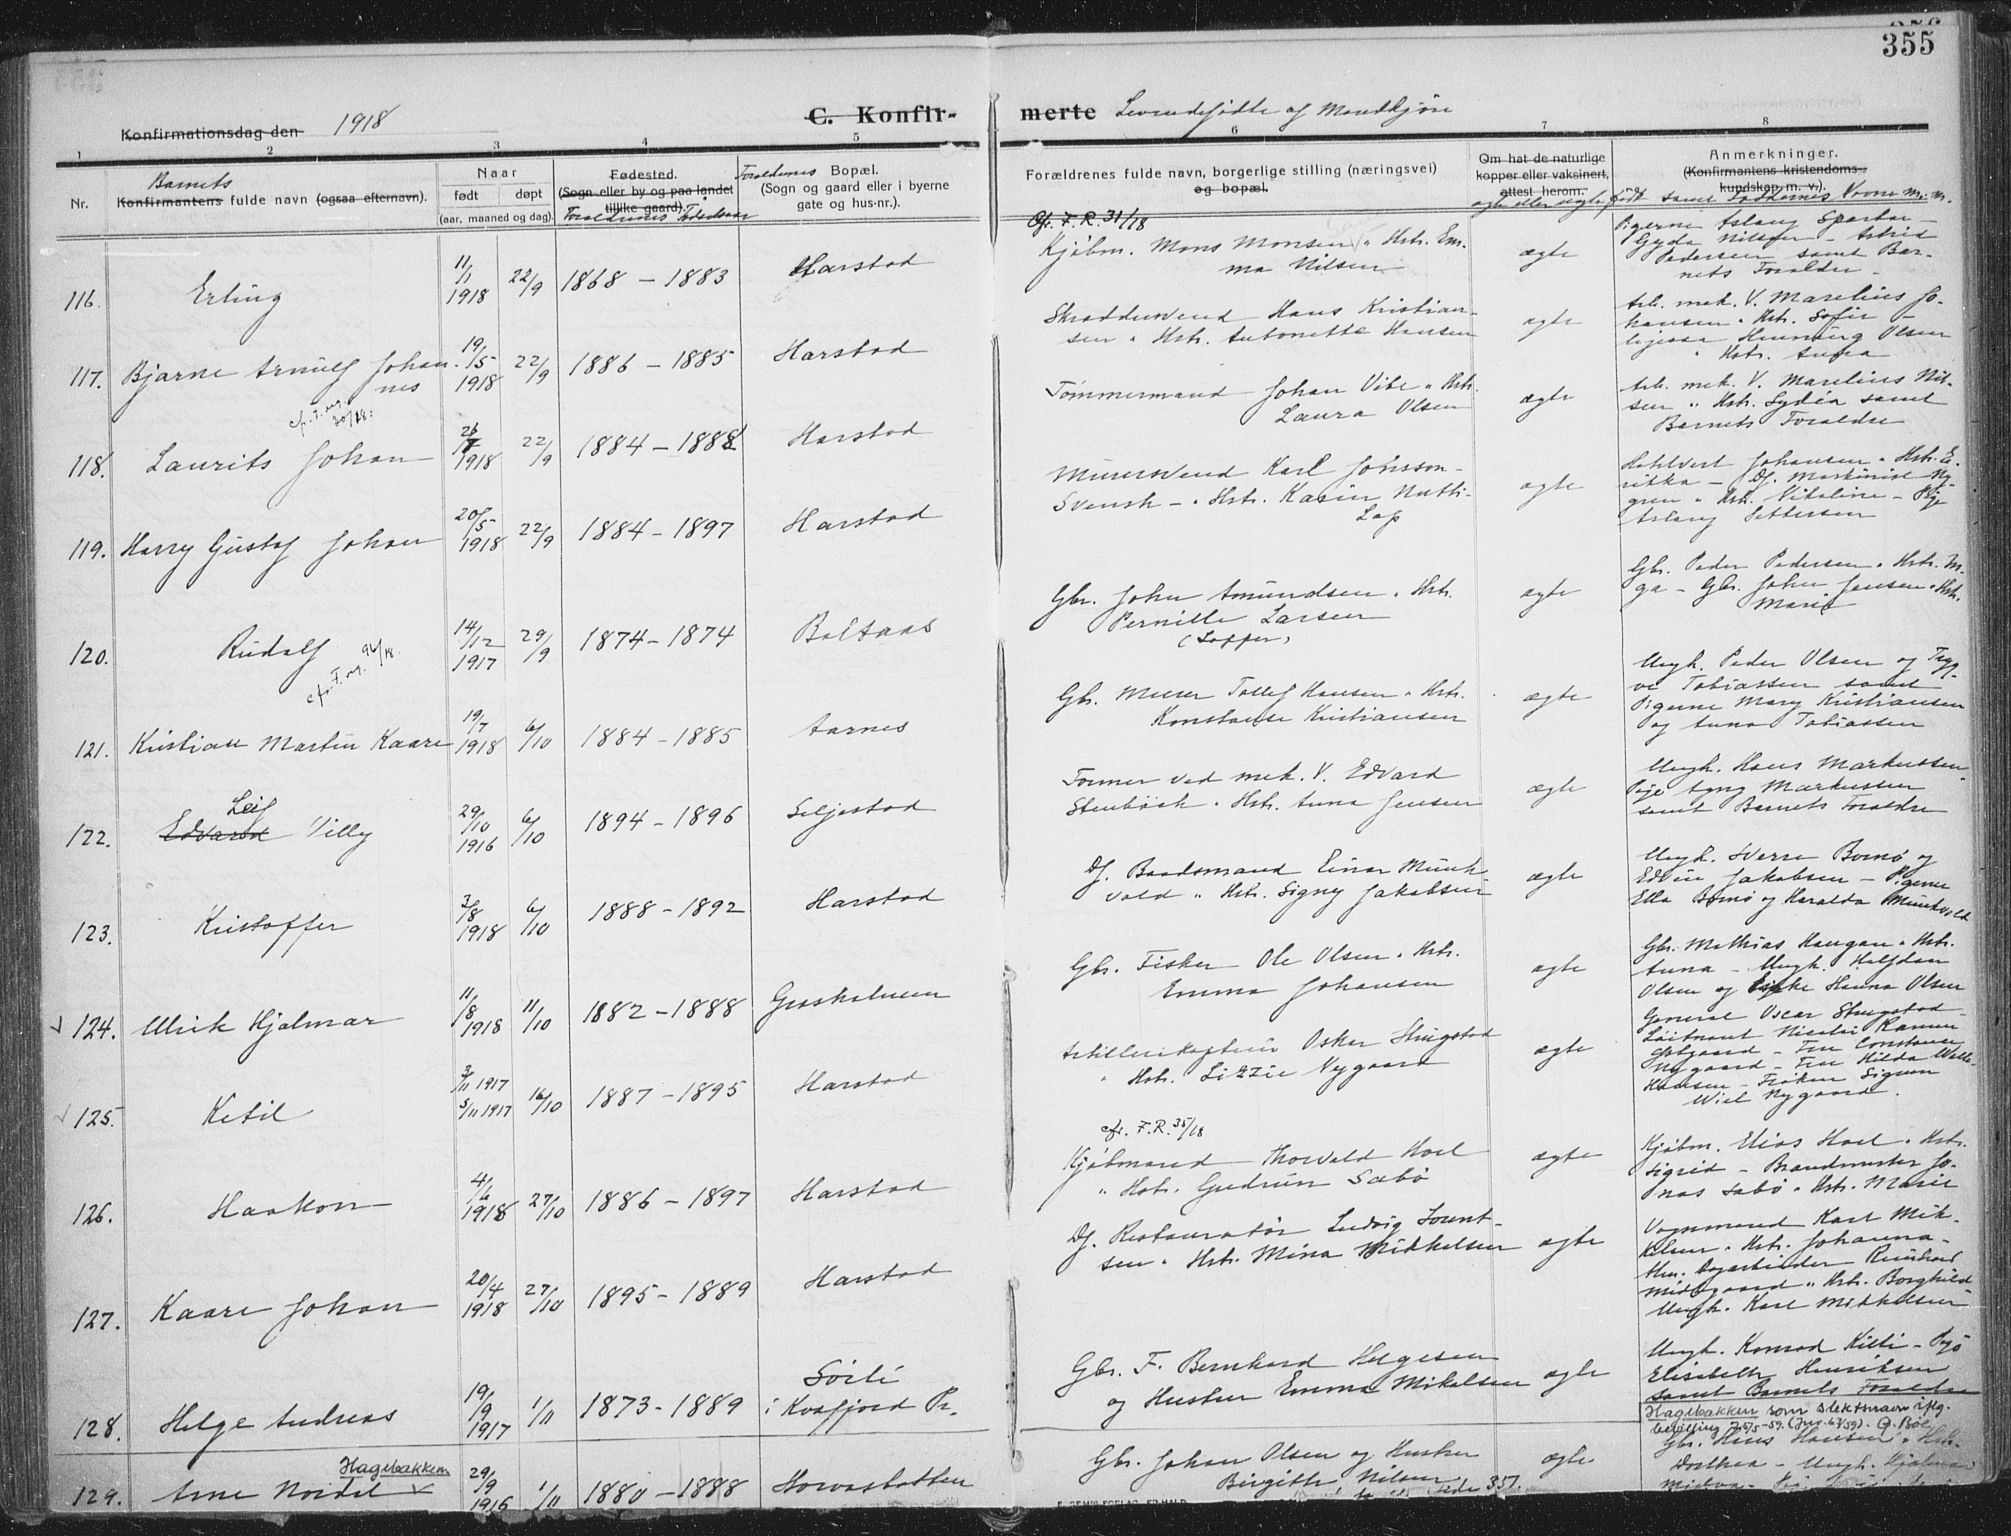 355
Konfirmationsdag den 1918
C. Konfir- merte Levendefødte af Mandkjøn
1 2 3 4 5 6 7 8
Nr.
Barnets
Konfirmantens fulde navn (ogsaa efternavn).
Naar
født døpt
(aar, maaned og dag).
Fødested.
(Sogn eller by og paa landet
tillike gaard).
Forældrenes Fødselsaar
Forældrenes Bopæl.
(Sogn og gaard eller i byerne
gate og hus-nr.).
Forældrenes fulde navn, borgerlige stilling (næringsvei)
og bopæl.
Om hat de naturlige
kopper eller vaksinert,
attest herom.
ægte eller uægte født
Anmerkninger.
(Konfirmantens kristendoms-
kundskap, m. v.).
samt Faddernes Navne m. m.
116. Erling 11/1 1918 22/9 1868 – 1883 Harstad
Cfr. F. R. 31/18
Kjøbm. Mons Monsen " Hstr. Em-
ma Nilsen
ægte
Pigerne Aslaug Sparbo –
Gyda Nilsen – Astrid
Pedersen samt Bar-
nets Forældre –
117. Bjarne Arnulf Johan-
nes 19/5 1918 22/9 1886 – 1885 Harstad
Skræddersvend Hans Kristian-
sen " Hstr. Antonette Hansen
ægte
Arb. mek. V. Marelius Jo-
hansen " Hstr. Sofie –
Henning Olsen
" Hstr. Anna
cfr. F. reg. 30/18:
118. Laurits Johan 1918 22/9 1884 – 1882 Harstad
Tømmermand Johan Vibe " Hstr.
Laura Olsen
ægte
Arb. mek. V. Marelius Nil-
sen " Hstr. Lydia samt
Barnets Forældre
119. Harry Gustaf Johan 20/5 1918 22/9 1884 – 1897 Harstad
Murersvend Karl Jonsson –
Svensk – " Hstr. Karin Nutti –
Lap
ægte
Johansen " Hstr. E-
rikka – Df. Maskinist Ny-
gren " Hstr. Vitaline – Pige
Aslaug Pettersen
120. Rudolf 14/12 1917 29/9 1874 – 1874 Boltaas
cfr. F. reg. 96/18.
Gbr. Johan Amundsen " Hstr.
Pernille Larsen
(Lapper)
ægte
Gbr. Peder Pedersen " Hstr. In-
ga – Gbr. John Jensen " Hstr.
Marie
121. Kristian Martin Kaare 19/7 1918 6/10 1884 – 1885 Aarnes
Gbr. Murer Tollef Hansen " Hstr.
Konstanse Kristiansen
ægte
Ungk. Peder Olsen og Tryg-
ve Tobiassen samt
Pigerne Mary Kristiansen
og Anna Tobiassen
Leif
122. Edvard Villy 29/10 1916 6/10 1894 – 1896 Seljestad
Former ved mek. V. Edvard
Stenbösk " Hstr. Anna Jensen
ægte
Ungk. Hans Markussen
Pige Agny Markussen
samt Barnets Forældre
123. Kristoffer 3/8 1918 6/10 1888 – 1892 Harstad
Df. Baadsmand Einar Munk-
vold " Hstr. Signy Jakobsen
ægte
Ungk. Sverre Bomø og
Edvin Jakobsen – Pigerne
Ella Bomø og Haralda Munkvold
124. Ulrik Hjalmar 11/8 1918 11/10 1882 – 1888 Grasholmen
Gbr. Fisker Ole Olsen " Hstr.
Emma Johansen
ægte
Gbr. Mathias Haugan " Hstr.
Anna – Ungk. Halfdan
Olsen og Hanna Olsen
125. Ketil 3/11 1917 5/11 1917 16/10 1887 – 1895 Harstad
Artillerikaptein Oskar Strugstad
" Hstr. Lizzie Nygaard
ægte
General Oscar Strugstad –
Löitnant Nicolai Ramm
Østgaard – Fru Constance
Nygaard – Fru Hilda
Hansen – Frøken Signon
Wiel Nygaard.
126. Haakon 4/6 1918 27/10 1886 – 1897 Harstad
cfr. F. R. 35/18
Kjøbmand Thorvald Hoel
" Hstr. Gudrun Sæbø
ægte
Kjøbm. Elias Hoel " Hstr.
Sigrid – Brandmester Jo-
nas Sæbø " Hstr. Marie
127. Kaare Johan 20/4 1918 27/10 1895 – 1889 Harstad
Df. Restauratør Ludvig Lorent-
sen " Hstr. Mina Mikkelsen
ægte
Vognmand Karl Mik-
kelsen " Hstr. Johanna –
Hm. Reinhard
Midgaard " Hstr. Borghild
Ungk. Karl Mikkelsen
128. Helge Andreas 19/9 1917 1/11 1873 – 1889 Sörli
i Kvæfjord Pr.
Gbr. F. Bernhard Helgesen
og Hustru Emma Mikalsen
ægte
Ungk. Konrad Kilti – Pige
Elisabeth Henriksen
samt Barnets Forældre
Hagebakken som slektsnavn iflg.
bevilling 25/5–59. (Jnr. 67/59). G. Böe
129. Arne Nordal Hagebakken 29/9 1916 1/11 1880 – 1888
Gbr. Johan Olsen og Hustru
Birgitte Nilsen
ægte
Gbr. Hans Hansen " Hstr.
Dorthea – Ungk. Hjalmar
Side 351.